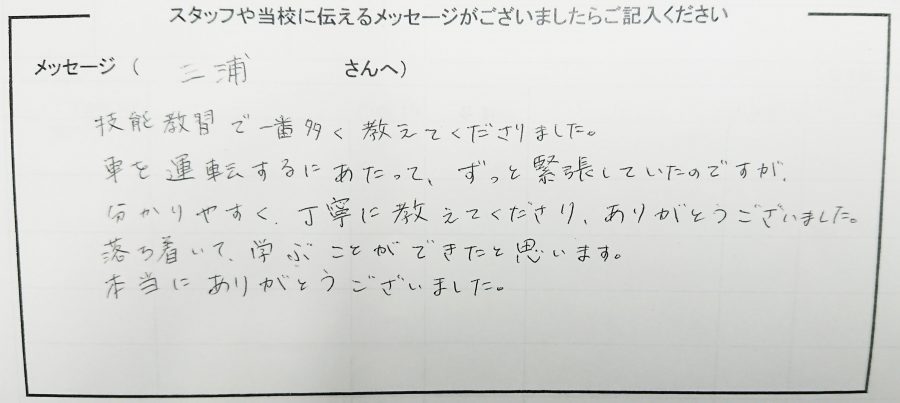 スタッフや当校に伝えるメッセージがございましたらご記入ください
メッセージ（ 三浦 さんへ）
技能教習で一番多く教えてくださりました。
車を運転するにあたって、ずっと緊張していたのですが、
分かりやすく、丁寧に教えてくださり、ありがとうございました。
落ち着いて、学ぶことができたと思います。
本当にありがとうございました。